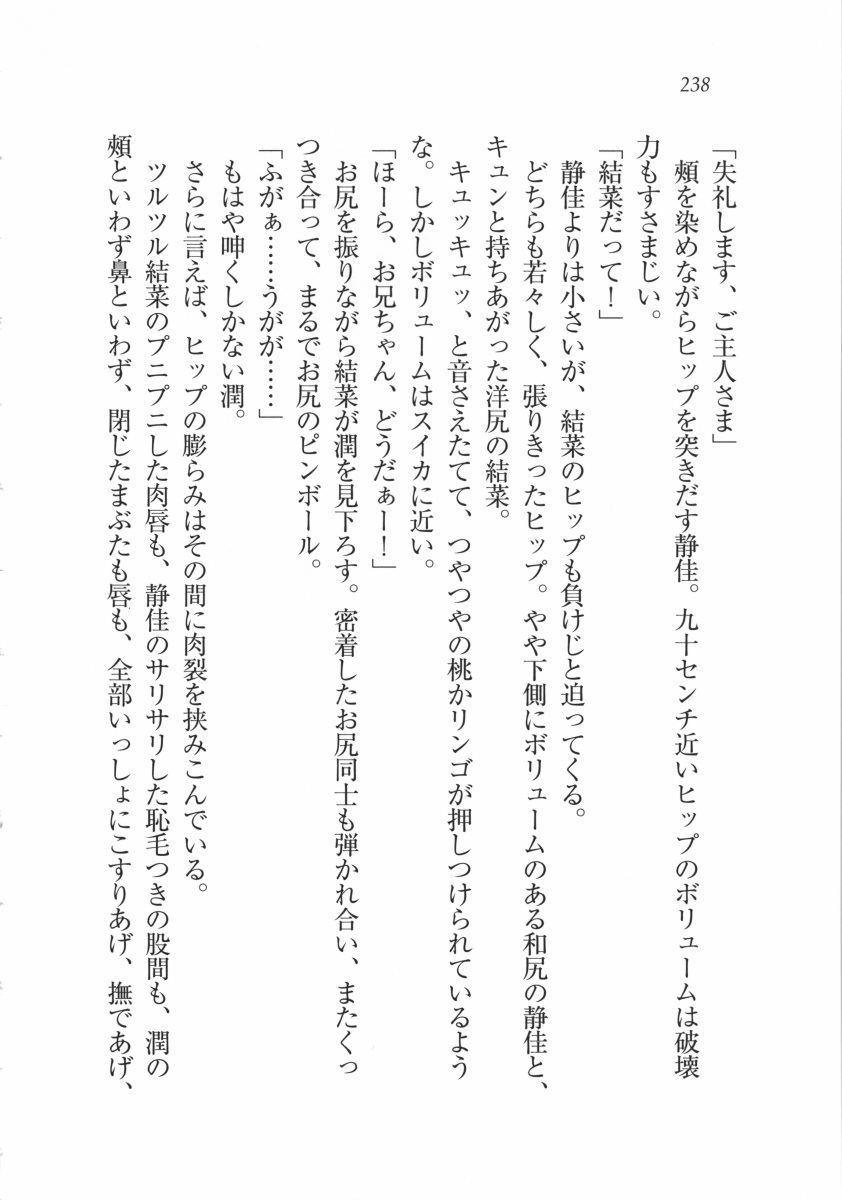 238
「失礼します、ご主人さま」
頰を染めながらヒップを突きだす静佳。九十センチ近いヒップのボリュームは破壊
力もすさまじい。
「結菜だって！」
静佳よりは小さいが、結菜のヒップも負けじと迫ってくる。
どちらも若々しく、張りきったヒップ。やや下側にボリュームのある和尻の静佳と、
キュンと持ちあがった洋尻の結菜。
キュッキュッ、と音さえたてて、つやつやの桃かリンゴが押しつけられているよう
な。しかしボリュームはスイカに近い。
「ほーら、お兄ちゃん、どうだぁー！」
お尻を振りながら結菜が潤を見下ろす。密着したお尻同士も弾かれ合い、またくっ
つき合って、まるでお尻のピンボール。
「ふがぁ……うがが……」
もはや呻くしかない潤。
さらに言えば、ヒップの膨らみはその間に肉裂を挟みこんでいる。
ツルツル結菜のプニプニした肉唇も、静佳のサリサリした恥毛つきの股間も、潤の
頰といわず鼻といわず、閉じたまぶたも唇も、全部いっしょにこすりあげ、撫であげ、